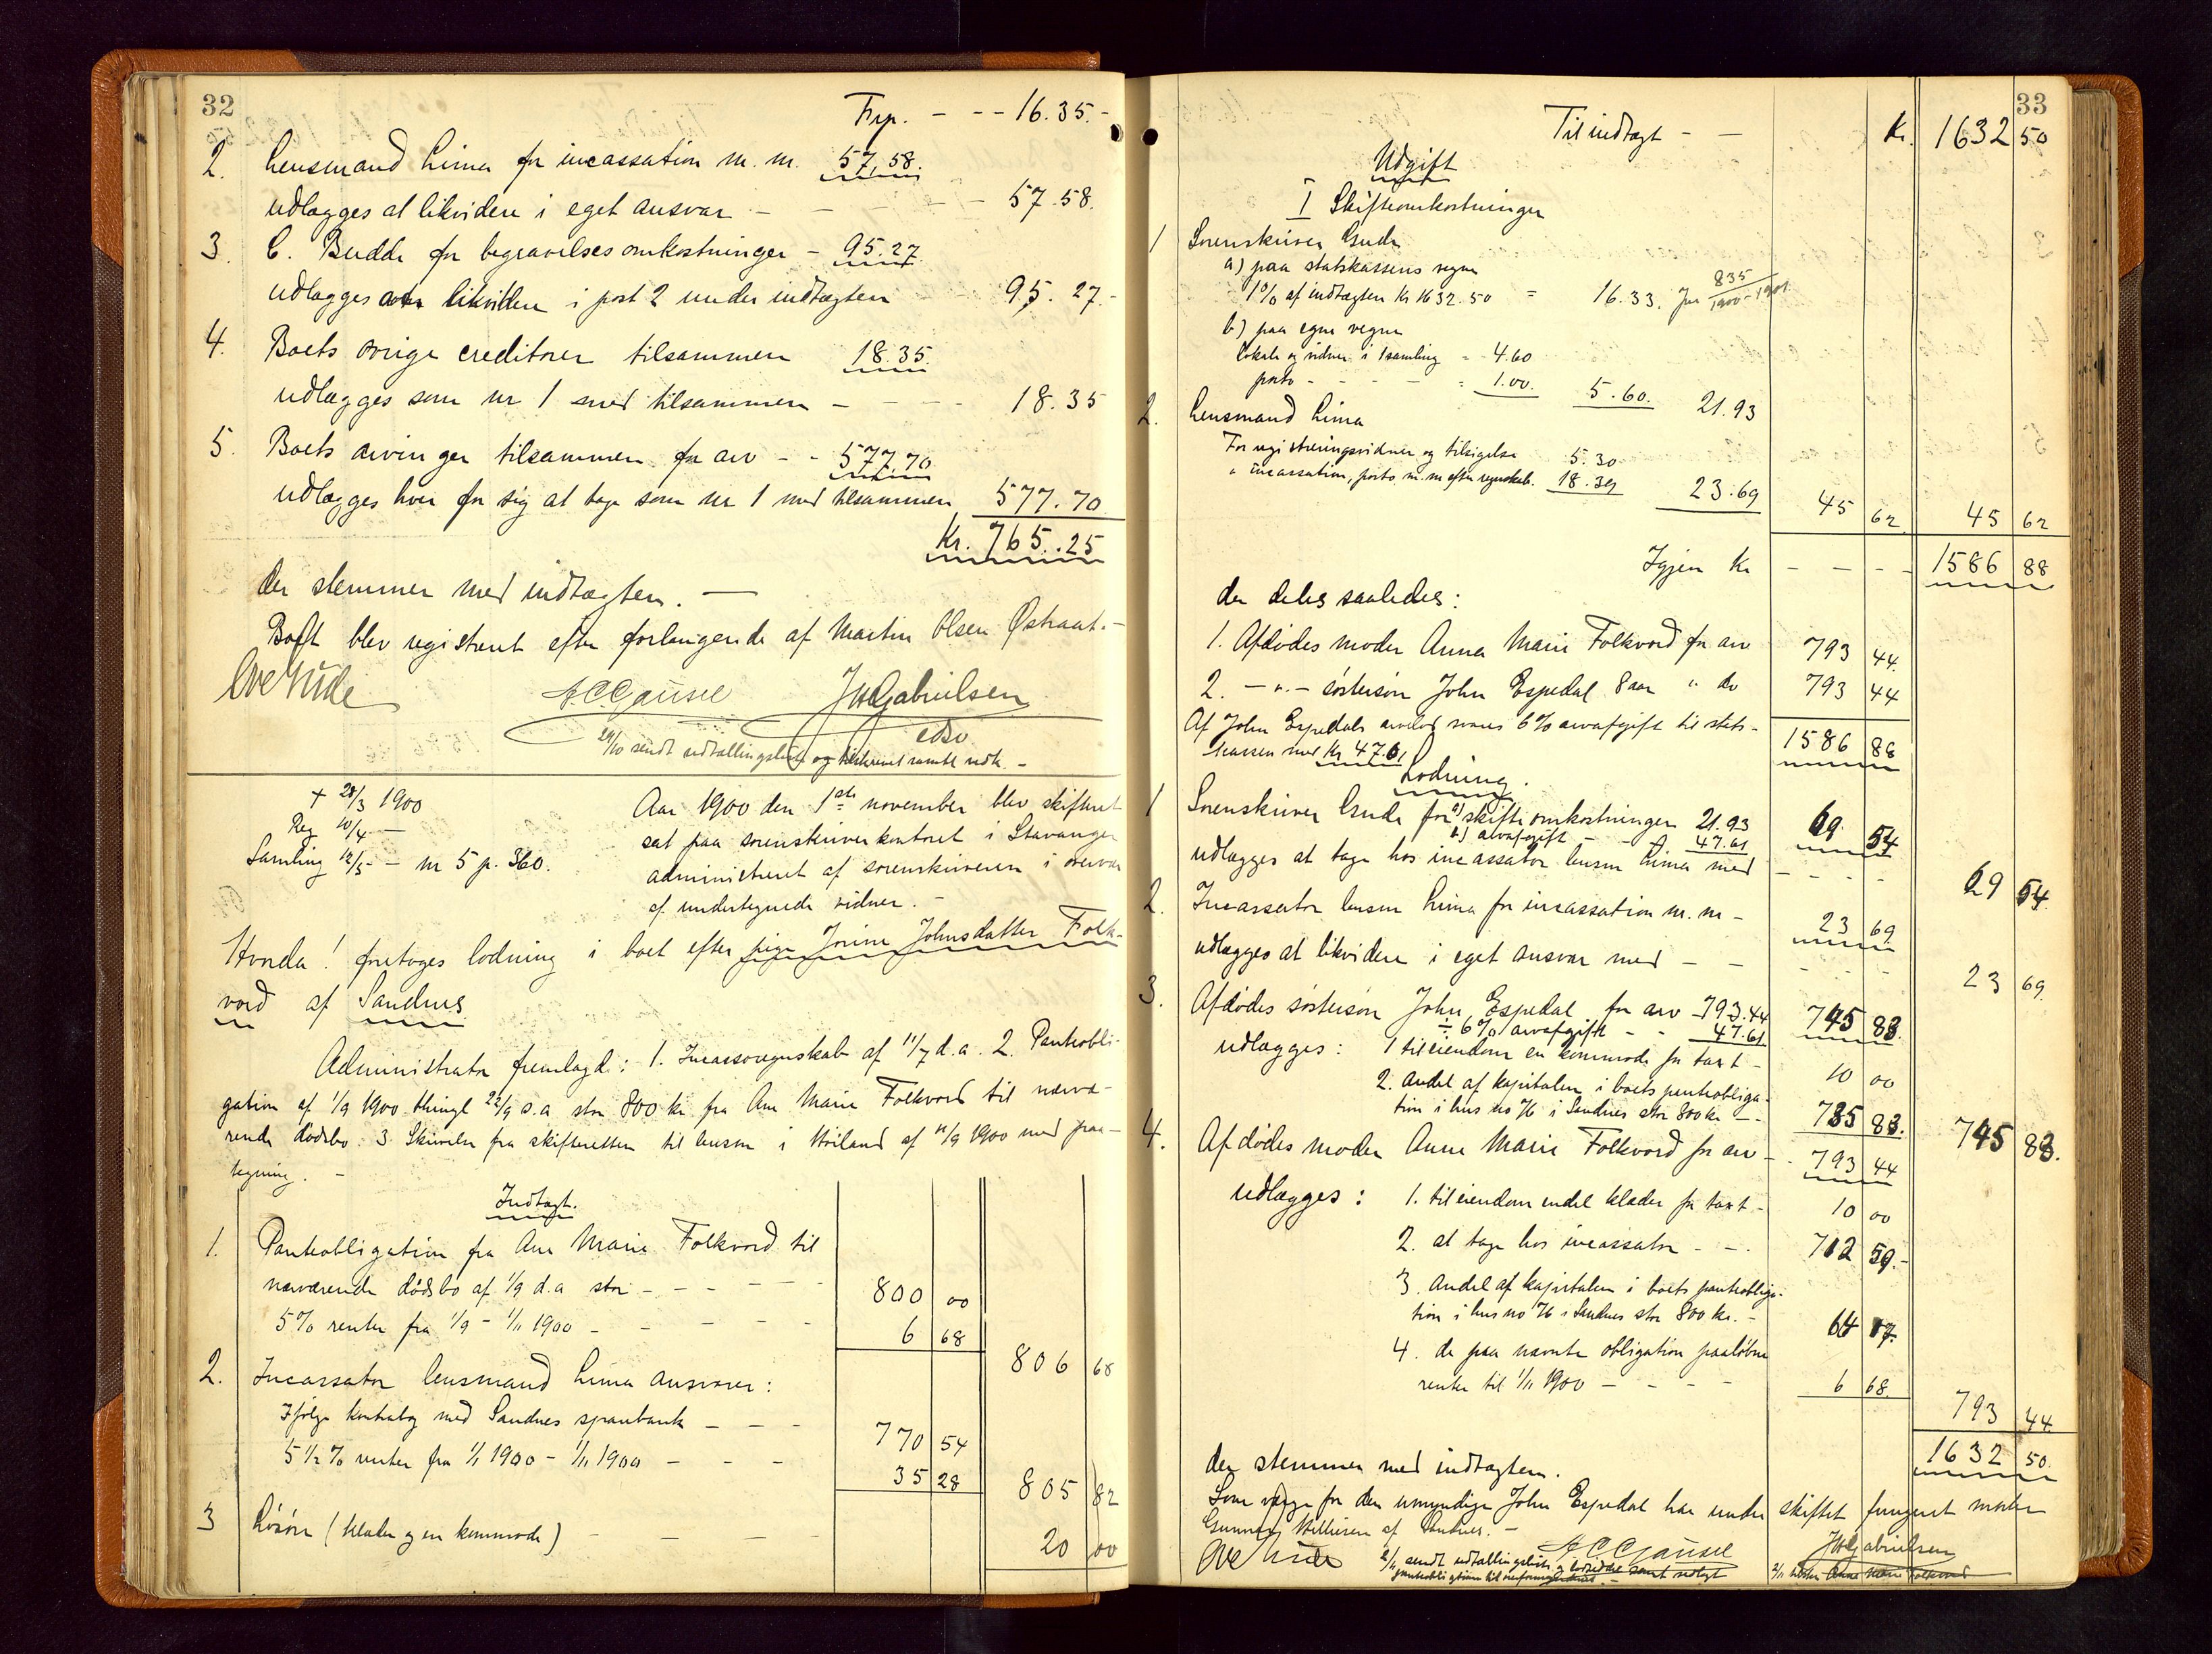 32
Frp. - - - 16.35.-
2. Lensmand Lima for incassation m. m. 57.58.
udlægges at likvidere i eget ansvar - - - - 57.58.
3. C. Budde for begravelsesomkostninger - 95.27.
udlægges likvidere i post 2 under indtægten - 95.27.-
4. Boets øvrige creditorer tilsammen 18.35.
udlægges som nr 1 med tilsammen - - - 18.35
5. Boets arvinger tilsammen for arv - - 577.70
udlægges hver for sig at tage som nr 1 med tilsammen 577.70
Kr. 765.25
der stemmer med indtægten. -
Boet blev registreret efter forlangende af Martin Olsen Østraat.-
Ove Gude A C Gausel J W Gabrielsen
29/10 sendt udtallingsliste og samtl. udk. -
+ 28/3 1900
Reg 10/4 -
Samling 12/5 - nr 5 p. 360.
Aar 1900 den 1ste november blev skifteret
sat paa sorenskriverkontoret i Stavanger
administreret af sorenskriveren i overvær
af undertegnede vidner. -
Hvorda! foretoges lodning i boet efter pige Jorine Johnsdatter Folk-
vord af Sandnes
Administrator fremlagde: 1. Incassoregnskab af 11/7 d.a. 2. Panteobli-
gation af 1/9 1900 thingl 22/9 s.a stor 800 kr fra Ane Marie Folkvord til nærvæ-
rende dødsbo. 3. Skrivelse fra skifteretten til lensm i Høiland af 11/9 1900 med paa-
tegning. -
Indtægt.
1. Panteobligation fra Ane Marie Folkvord til
nærværende dødsbo af 1/9 d.a stor - - - 800 00
5% renter fra 1/9 - 1/11 1900 - - - - - 6 68
806 68
2. Incassator lensmand Lima ansvarer:
Ifølge kontrabog med Sandnes sparebank - - - 770 54
5 1/2 % renter fra 1/1 1900 - 1/11 1900 - - - 35 28
805 82
3 Løsøre (klæder og en kommode) - - - 20 00
33
Til indtægt - - Kr. 1632 50
Udgift
I Skifteomkostninger
1 Sorenskriver Gude
a) paa statskassens vegne
1% af indtægten Kr 1632.50 = 16.33. Jnr 835/1900-1901
b) paa egne vegne
lokale og vidner i 1 samling = 4.60
porto - - - - = 1.00. 5.60. 21.93
2. Lensmand Lima
For registreringsvidner og tilsigelse 5.30
" incassation, porto m. m efter regnskab. 18.39 23.69 45 62 45 62
Igjen Kr - - - - 1586 88
der deles saaledes:
1. Afdødes moder Anna Marie Folkvord for arv 793 44.
2. - " - søstersøn John Espedal 8 aar " do 793 44
Af John Espedals arvelod svares 6% arveafgift til stats-
kassen med Kr 47.61 1586 88
Lodning.
1 Sorenskriver Gude for a) skifteomkostninger 21.93
b) arveafgift - - 47.61 69 54
udlægges at tage hos incassator lensm Lima med - - - - 69 54.
2. Incassator lensm Lima for incassation m. m - 23 69
udlægges at likvidere i eget ansvar med - - - - - 23 69
3. Afdødes søstersøn John Espedal for arv 793.44
÷ 6% arveafgift - - 47.61 745 83.
udlægges: 1 til eiendom en kommode for taxt - 10 00
2. Andel af kapitalen i boets panteobliga-
tion i hus no 76 i Sandnes stor 800 kr - 735 83. 745 83.
4. Afdødes moder Anne Marie Folkvord for arv - 793 44
udlægges: 1. til eiendom endel klæder for taxt - 10 00
2. at tage hos incassator - - - 712 59.-
3. Andel af kapitalen i boets panteobliga-
tion i hus no 76 i Sandnes stor 800 kr. - 64 17.
4. de paa nævnte obligation paaløbne
renter til 1/11 1900 - - - - 6 68. 793 44.
1632 50.
der stemmer med indtægten.
Som værge for den umyndige John Espedal har under skiftet fungeret
Gunnar af Sandnes. -
Ove Gude A C Gausel J W Gabrielsen
2/11 sendt udtallingsliste samt
2/11 Anne Marie Folkvord